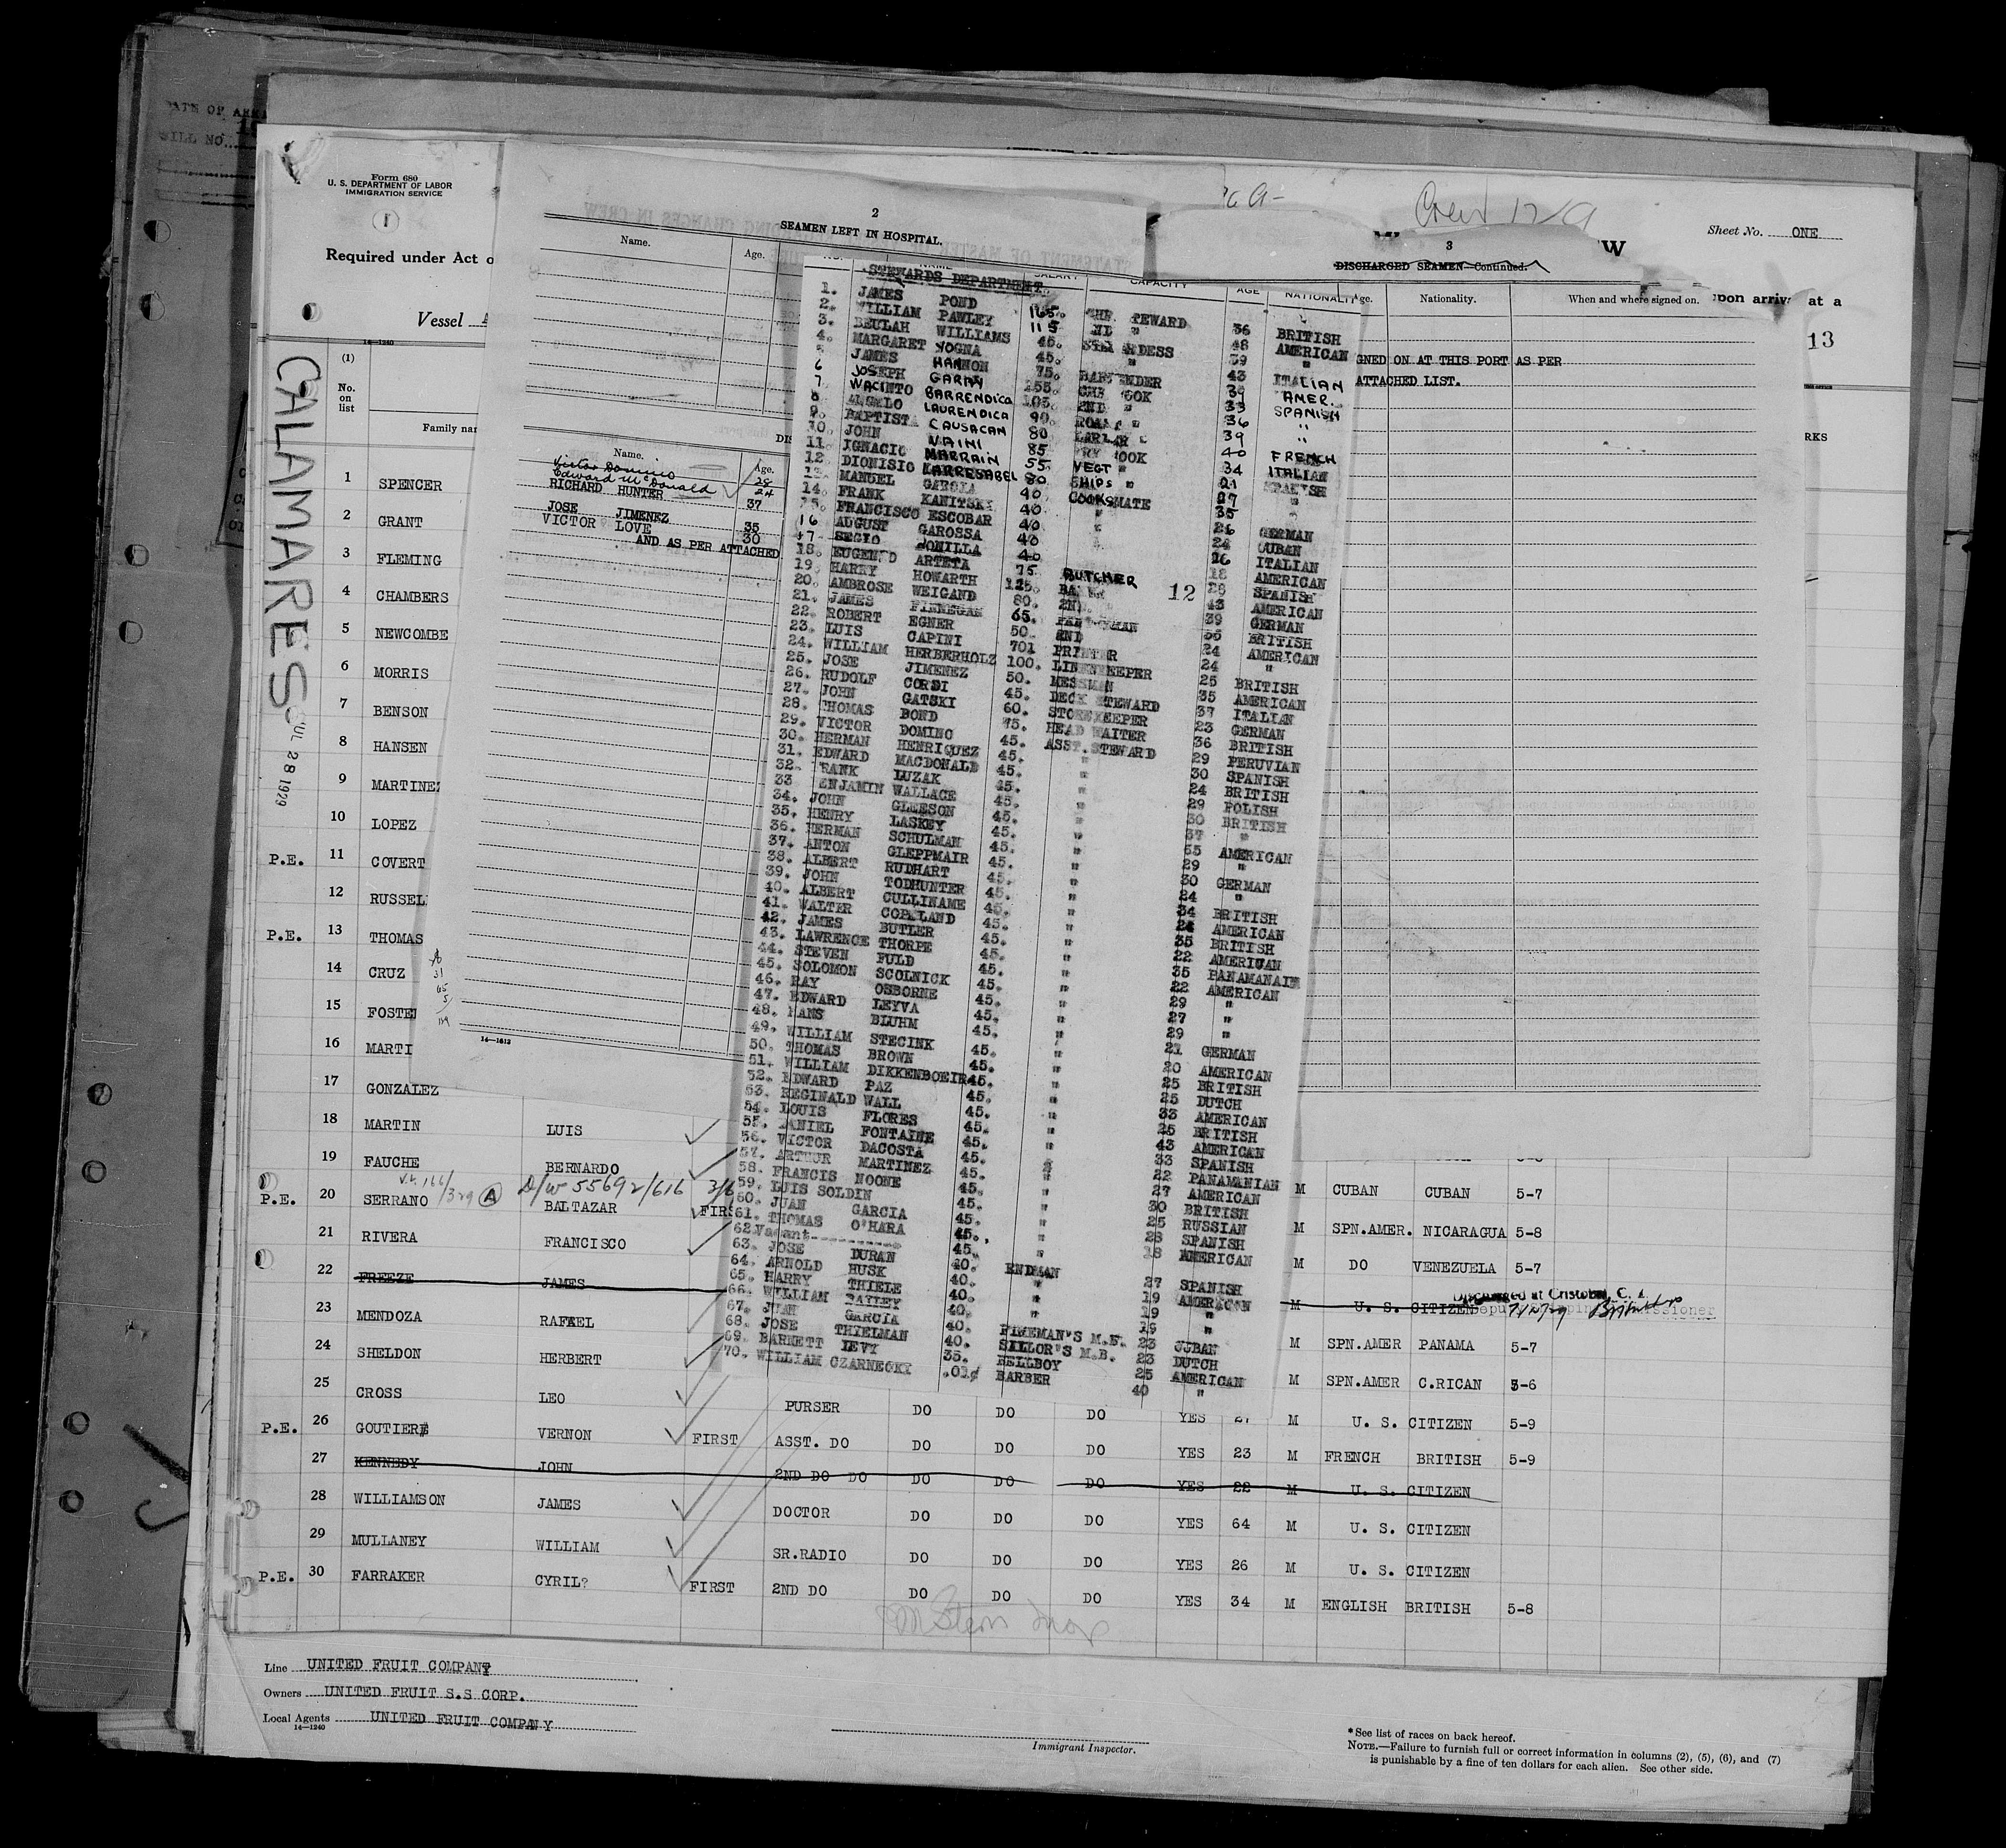 DATE OF
BILL NO.
Form 680
U. S. DEPARTMENT OF LABOR
IMMIGRATION SERVICE
1
Required under Act o
Vessel
14—1240
(1)
No.
on
list
Family nam
CALAMARES
JUL 28 1929
1 SPENCER
2 GRANT
3 FLEMING
4 CHAMBERS
5 NEWCOMBE
6 MORRIS
7 BENSON
8 HANSEN
9 MARTINEZ
10 LOPEZ
P.E. 11 COVERT
12 RUSSEL
P.E. 13 THOMAS
14 CRUZ
15 FOSTE
16 MARTI
17 GONZALEZ
18 MARTIN LUIS
19 FAUCHE BERNARDO
D/W 55692/616
P.E. 20 SERRANO A BALTAZAR FIRS M CUBAN CUBAN 5-7
21 RIVERA FRANCISCO M SPN.AMER. NICARAGUA 5-8
M DO VENEZUELA 5-7
22 FREEZE JAMES M U. S. CITIZEN Discharged at Cristobal, C. Z.
23 MENDOZA RAFAEL M SPN.AMER PANAMA 5-7
24 SHELDON HERBERT M SPN.AMER C.RICAN 5-6
25 CROSS LEO PURSER DO DO DO YES 27 M U. S. CITIZEN 5-9
P.E. 26 GOUTIERE VERNON FIRST ASST. DO DO DO DO YES 23 M FRENCH BRITISH 5-9
27 KENNEDY JOHN 2ND DO DO DO DO DO YES 22 M U. S. CITIZEN
28 WILLIAMSON JAMES DOCTOR DO DO DO YES 64 M U. S. CITIZEN
29 MULLANEY WILLIAM SR.RADIO DO DO DO YES 26 M U. S. CITIZEN
P.E. 30 FARRAKER CYRIL? FIRST 2ND DO DO DO DO YES 34 M ENGLISH BRITISH 5-8
Line UNITED FRUIT COMPANY
Owners UNITED FRUIT S.S CORP.
Local Agents UNITED FRUIT COMPANY
14—1240
Immigrant Inspector.
*See list of races on back hereof.
NOTE.—Failure to furnish full or correct information in columns (2), (5), (6), and (7)
is punishable by a fine of ten dollars for each alien. See other side.
2
SEAMEN LEFT IN HOSPITAL.
Name. Age.
Name. Age.
Victor Domino 28
Edward McDonald 24
RICHARD HUNTER 37
JOSE JIMENEZ 35
VICTOR LOVE 30
AND AS PER ATTACHED
14—1613
NO. NAME SALARY CAPACITY AGE NATIONALITY
STEWARDS DEPARTMENT
1. JAMES POND 165. CHF. STEWARD 36 BRITISH
2. WILLIAM PAWLEY 115 2ND " 48 AMERICAN
3. BEULAH WILLIAMS 45. STEWARDESS 39
4. MARGARET YOGNA 45. " 43 ITALIAN
5 JAMES HANNON 75. BARTENDER 39 AMER.
6 JOSEPH GARAY 155. CHF COOK 33 SPANISH
7 WACINTO BARRENDICA 105. 2ND " 36 "
8 ANGELO LAURENDICA 90. 39 "
9. BAPTISTA CAUSACAN 80 40 FRENCH
10. JOHN VAINI 85 FRY COOK 34 ITALIAN
11. IGNACIO MARRAIN 55. VEGT " 21 SPANISH
12 DIONISIO LARRESABEL 80. SHIPS " 27 "
13 MANUEL GARCIA 40 COOKSMATE 35 "
14. FRANK KANITSKY 40. " 26 GERMAN
15. FRANCISCO ESCOBAR 40. " 24 CUBAN
16 AUGUST GAROSSA 40 26 ITALIAN
17 SEGIO JONILLA 40. 18 AMERICAN
18. EUGENIO ARTETA 75. BUTCHER 28 SPANISH
19. HARRY HOWARTH 125. BAKER 43 AMERICAN
20. AMBROSE WEIGAND 80. 2ND. 39 GERMAN
21. JAMES FINNEGAN 65. PANTRYMAN 36 BRITISH
22. ROBERT EGNER 50. 2ND 24 AMERICAN
23. LUIS CAPINI 701 PRINTER 24 "
24. WILLIAM HERBERHOLZ 100. LINENKEEPER 25 BRITISH
25. JOSE JIMENEZ 50. MESSMAN 35 AMERICAN
26. RUDOLF CORSI 45. DECK STEWARD 37 ITALIAN
27. JOHN GATSKI 60. STOREKEEPER 23 GERMAN
28. THOMAS BOND 75. HEAD WAITER 36 BRITISH
29. VICTOR DOMINO 45. ASST. STEWARD 29 PERUVIAN
30. HERMAN HENRIQUEZ 45. " 30 SPANISH
31. EDWARD MACDONALD 45. 24 BRITISH
32. FRANK LUZAK 45. " 29 POLISH
33 BENJAMIN WALLACE 45. 30 BRITISH
34. JOHN GLEESON 45. " 37 "
35. HENRY LASKEY 45. " 55 AMERICAN
36. HERMAN SCHULMAN 45. " 29 "
37. ANTON GLEPPMAIR 45. " 30 GERMAN
38. ALBERT RUDHART 45. " 24 "
39. JOHN TODHUNTER 45. " 34 BRITISH
40. ALBERT CULLINAME 45. " 24 AMERICAN
41. WALTER COPELAND 45. " 35 BRITISH
42. JAMES BUTLER 45. " 22 AMERICAN
43. LAWRENCE THORPE 45. " 35 PANAMANAIN
44. STEVEN FULD 45. " 22 AMERICAN
45. SOLOMON SCOLNICK 45. " 29 "
46. RAY OSBORNE 45. " 27 "
47. EDWARD LEYVA 45. " 29 "
48. HANS BLUHM 45. " 21 GERMAN
49. WILLIAM STECINK 45. " 20 AMERICAN
50. THOMAS BROWN 45. " 25 BRITISH
51. WILLIAM DIKKENBOEIR 45. " 25 DUTCH
52. EDWARD PAZ 45. " 33 AMERICAN
53. REGINALD WALL 45. " 25 BRITISH
54. LOUIS FLORES 45. " 43 AMERICAN
55. DANIEL FONTAINE 45. " 33 SPANISH
56. VICTOR DACOSTA 45. " 22 PANAMANIAN
57. ARTHUR MARTINEZ 45. " 27 AMERICAN
58. FRANCIS NOONE 45. " 30 BRITISH
59. LUIS SOLDIN 45. " 25 RUSSIAN
60. JUAN GARCIA 45. " 28 SPANISH
61. THOMAS O'HARA 45. " 18 AMERICAN
62. Vacant
63. JOSE DURAN 45. " 27 SPANISH
64. ARNOLD HUSK 40. ENDMAN 19 AMERICAN
65. HARRY THIELE 40. " 19 "
66. WILLIAM BAILEY 40. " 19 "
67. JUAN GARCIA 40. FIREMAN'S M.B. 23 CUBAN
68. JOSE THIELMAN 40. SAILOR'S M.B. 23 DUTCH
69. BARNETT LEVY 35. BELLBOY 25 AMERICAN
70. WILLIAM CZARNECKY .01¢ BARBER 40 "
12
Crew 17/A
Sheet No. ONE
W
3
DISCHARGED SEAMEN—Continued.
ge. Nationality. When and where signed on.
upon arriv at a
13
GNED ON AT THIS PORT AS PER
ATTACHED LIST.
RKS